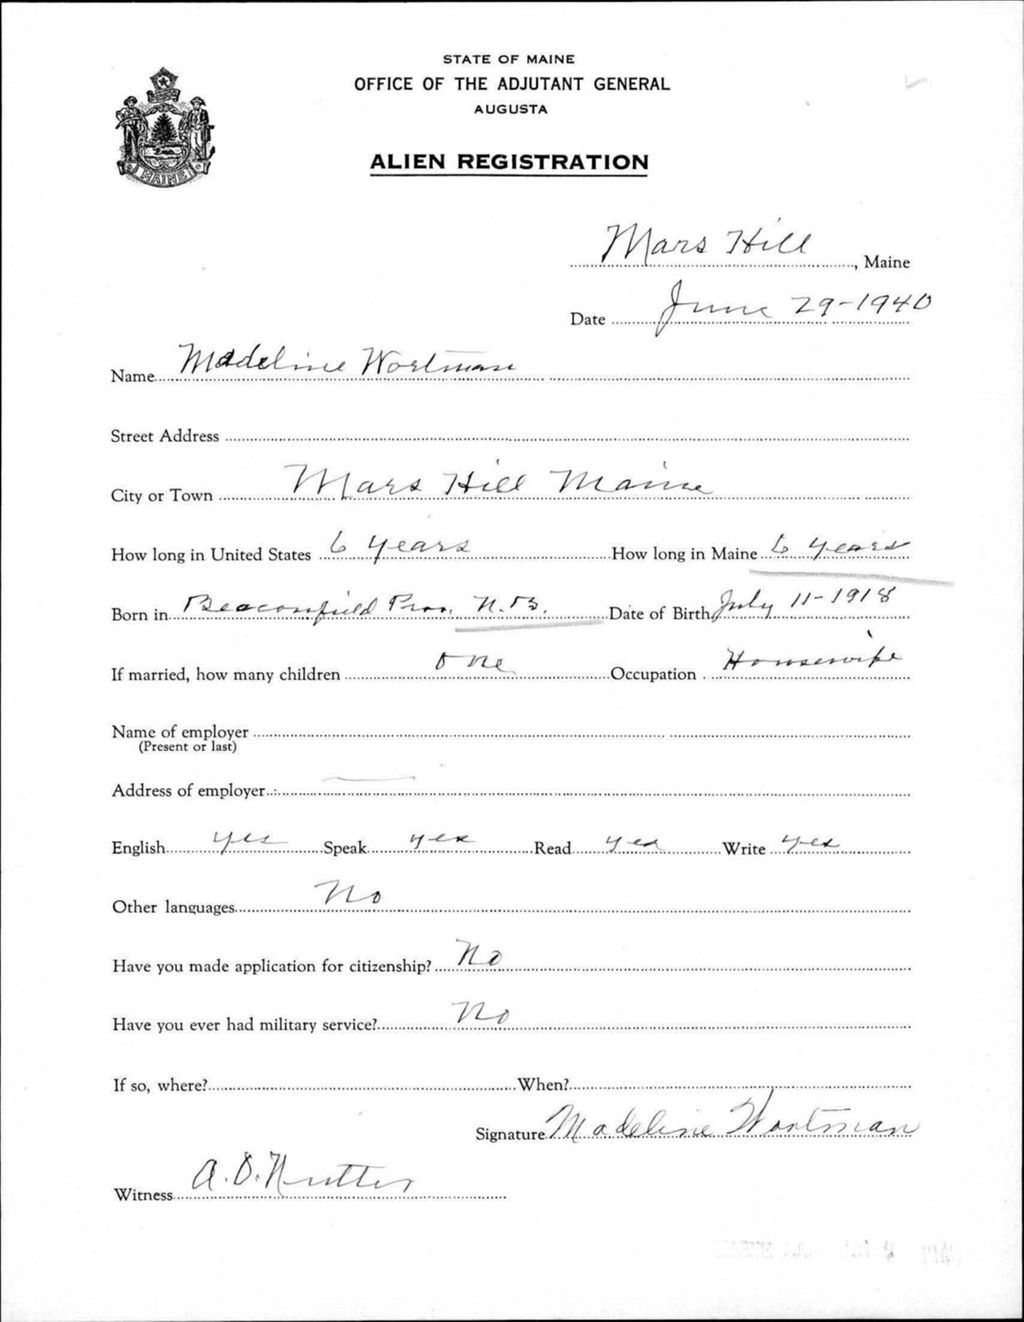 STATE OF MAINE
OFFICE OF THE ADJUTANT GENERAL
AUGUSTA
MAINE
ALIEN REGISTRATION
Mars Hill, Maine
Date June 29-1940
Name Madeline Wortman
Street Address
City or Town Mars Hill Maine
How long in United States 6 years How long in Maine 6 years
Born in Beaconsfield Prov. N.B. Date of Birth July 11-1918
If married, how many children one Occupation Housewife
Name of employer
(Present or last)
Address of employer
English yes Speak yes Read yes Write yes
Other languages No
Have you made application for citizenship? No
Have you ever had military service? No
If so, where? When?
Signature Madeline Wortman
Witness A.D. Nutter